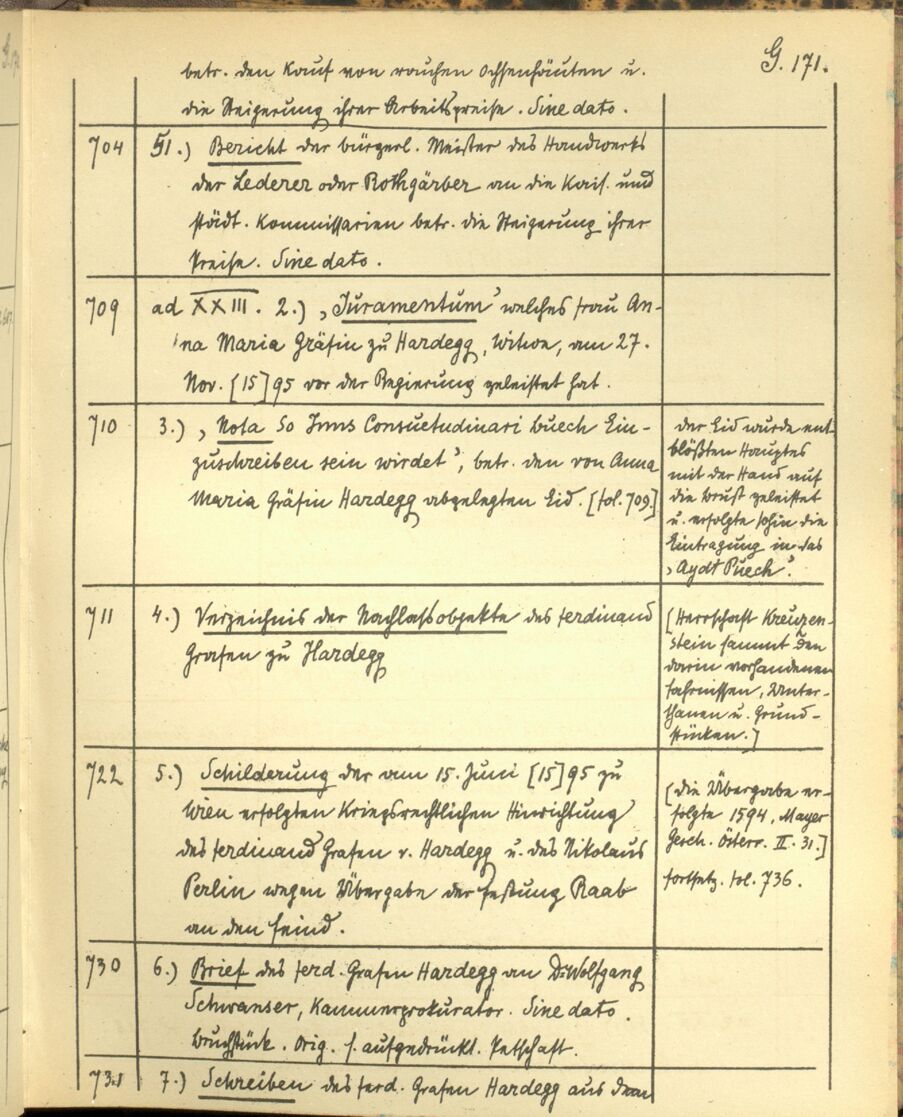 G. 171.
betr. den Kauf von rauchen Ochsenhäuten u.
die Steigerung ihrer Arbeitspreise. Sine dato.
704 51.) Bericht der bürgerl. Meister des Handwerks
der Lederer oder Rothgärber an die Kais. und
städt. Kommissarien betr. die Steigerung ihrer
Preise. Sine dato.
709 ad XXIII. 2.) „Juramentum" welches Frau An-
na Maria Gräfin zu Hardegg, Witwe, am 27.
Nov. [15]95 vor der Regierung geleistet hat.
710 3.) „Nota So Inns Consuetudinari buech Ein-
zuschreiben sein wirdet", betr. den von Anna
Maria Gräfin Hardegg abgelegten Eid. [fol. 709.]
der Eid wurde ent-
blößten Hauptes
mit der Hand auf
die Brust geleistet
u. erfolgte sohin die
Eintragung in das
„Aydt Puech".
711 4.) Verzeichnis der Nachlaßobjekte des Ferdinand
Grafen zu Hardegg
[Herrschaft Kreuzen-
stein sammt den
darin vorhandenen
Fahrnissen, Unter-
thanen u. Grund-
stücken.]
722 5.) Schilderung der am 15. Juni [15]95 zu
Wien erfolgten Kriegsrechtlichen Hinrichtung
des Ferdinand Grafen v. Hardegg u. des Nikolaus
Perlin wegen Übergabe der Festung Raab
an den Feind.
[die Übergabe er-
folgte 1594, Mayer
Gesch. Österr. II. 31.]
Fortsetz. fol. 736.
730 6.) Brief des Ferd. Grafen Hardegg an Dr Wolfgang
Schwanser, Kammerprokurator. Sine dato.
Bruchstück. Orig. s. aufgedrückt. Petschaft.
731 7.) Schreiben des Ferd. Grafen Hardegg aus dem